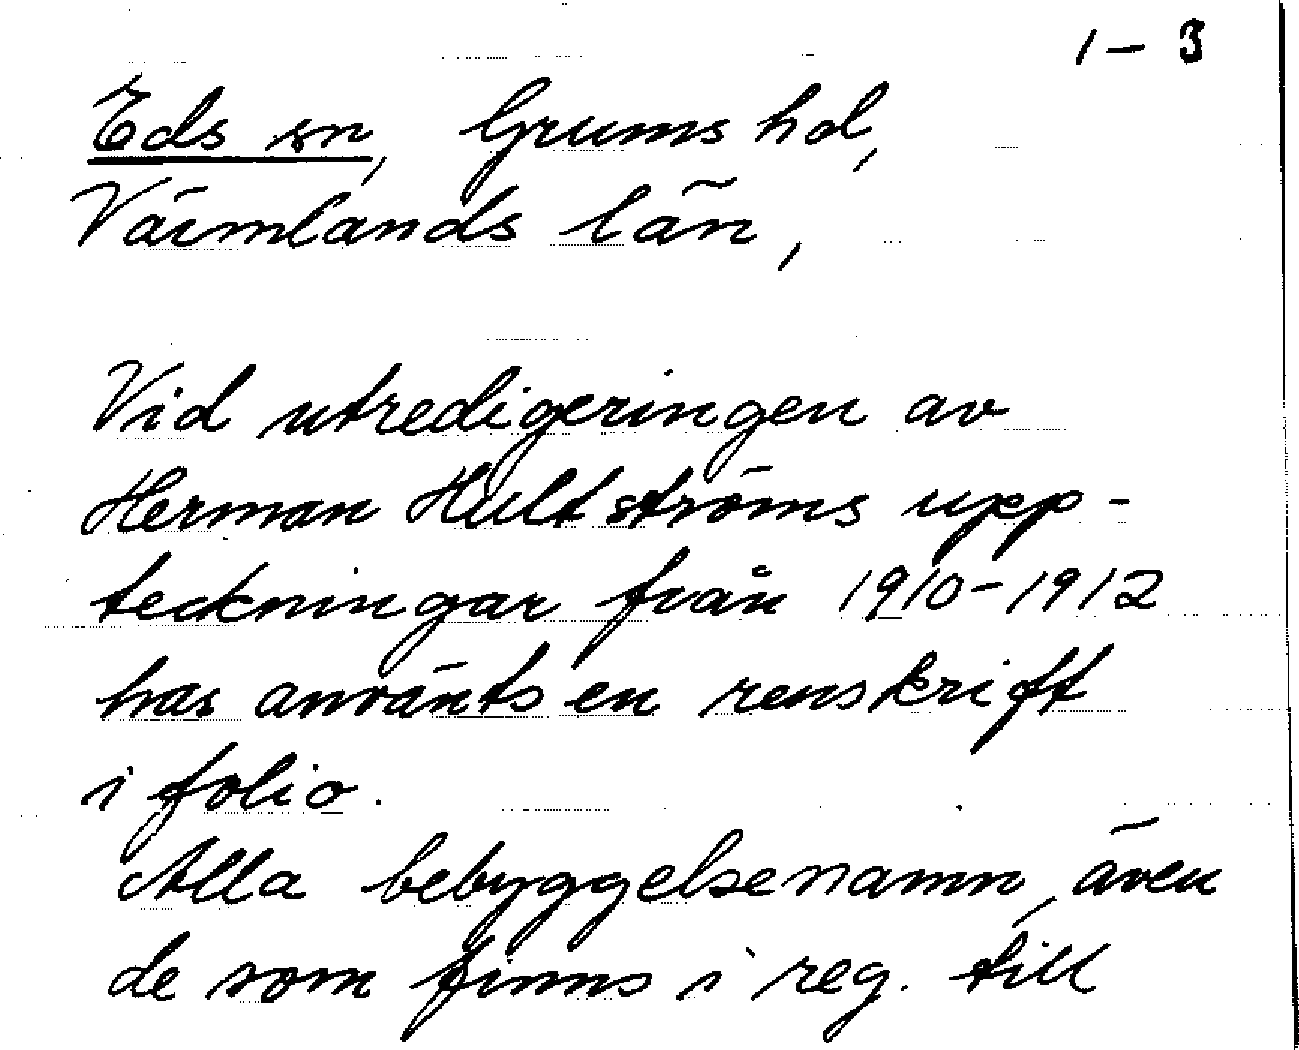 1 - 3
Eds sn, Grums hd,
Värmlands län,
Vid utredigeringen av
Herman Hultströms upp-
teckningar från 1910-1912
has använts en renskrift
i folio.
Alla bebyggelsenamn, även
de som finns i reg. till